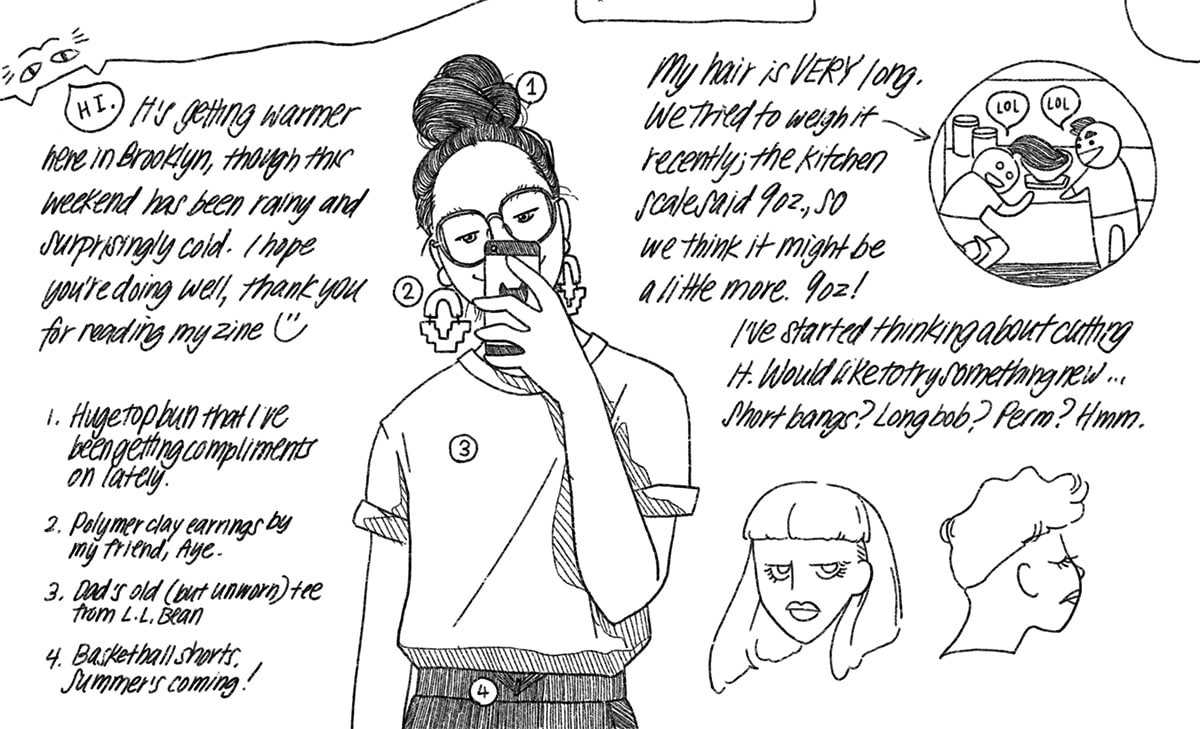 HI. It's getting warmer
here in Brooklyn, though this
weekend has been rainy and
surprisingly cold. I hope
you're doing well, thank you
for reading my zine
1. Huge top bun that I've
been getting compliments
on lately.
2. Polymer clay earrings by
my friend, Aye.
3. Dad's old (but unworn) tee
from L.L. Bean
4. Basketball shorts,
summer's coming!
1
2
3
4
My hair is VERY long.
We tried to weigh it
recently; the kitchen
scale said 9oz., so
we think it might be
a little more. 9oz!
LOL
LOL
I've started thinking about cutting
it. Would like to try something new...
Short bangs? Long bob? Perm? Hmm.